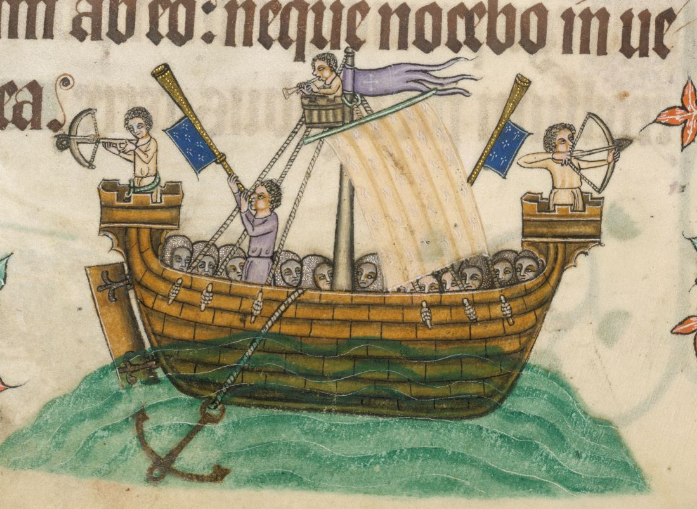 ad eo: neque nocebo in ue
ea.